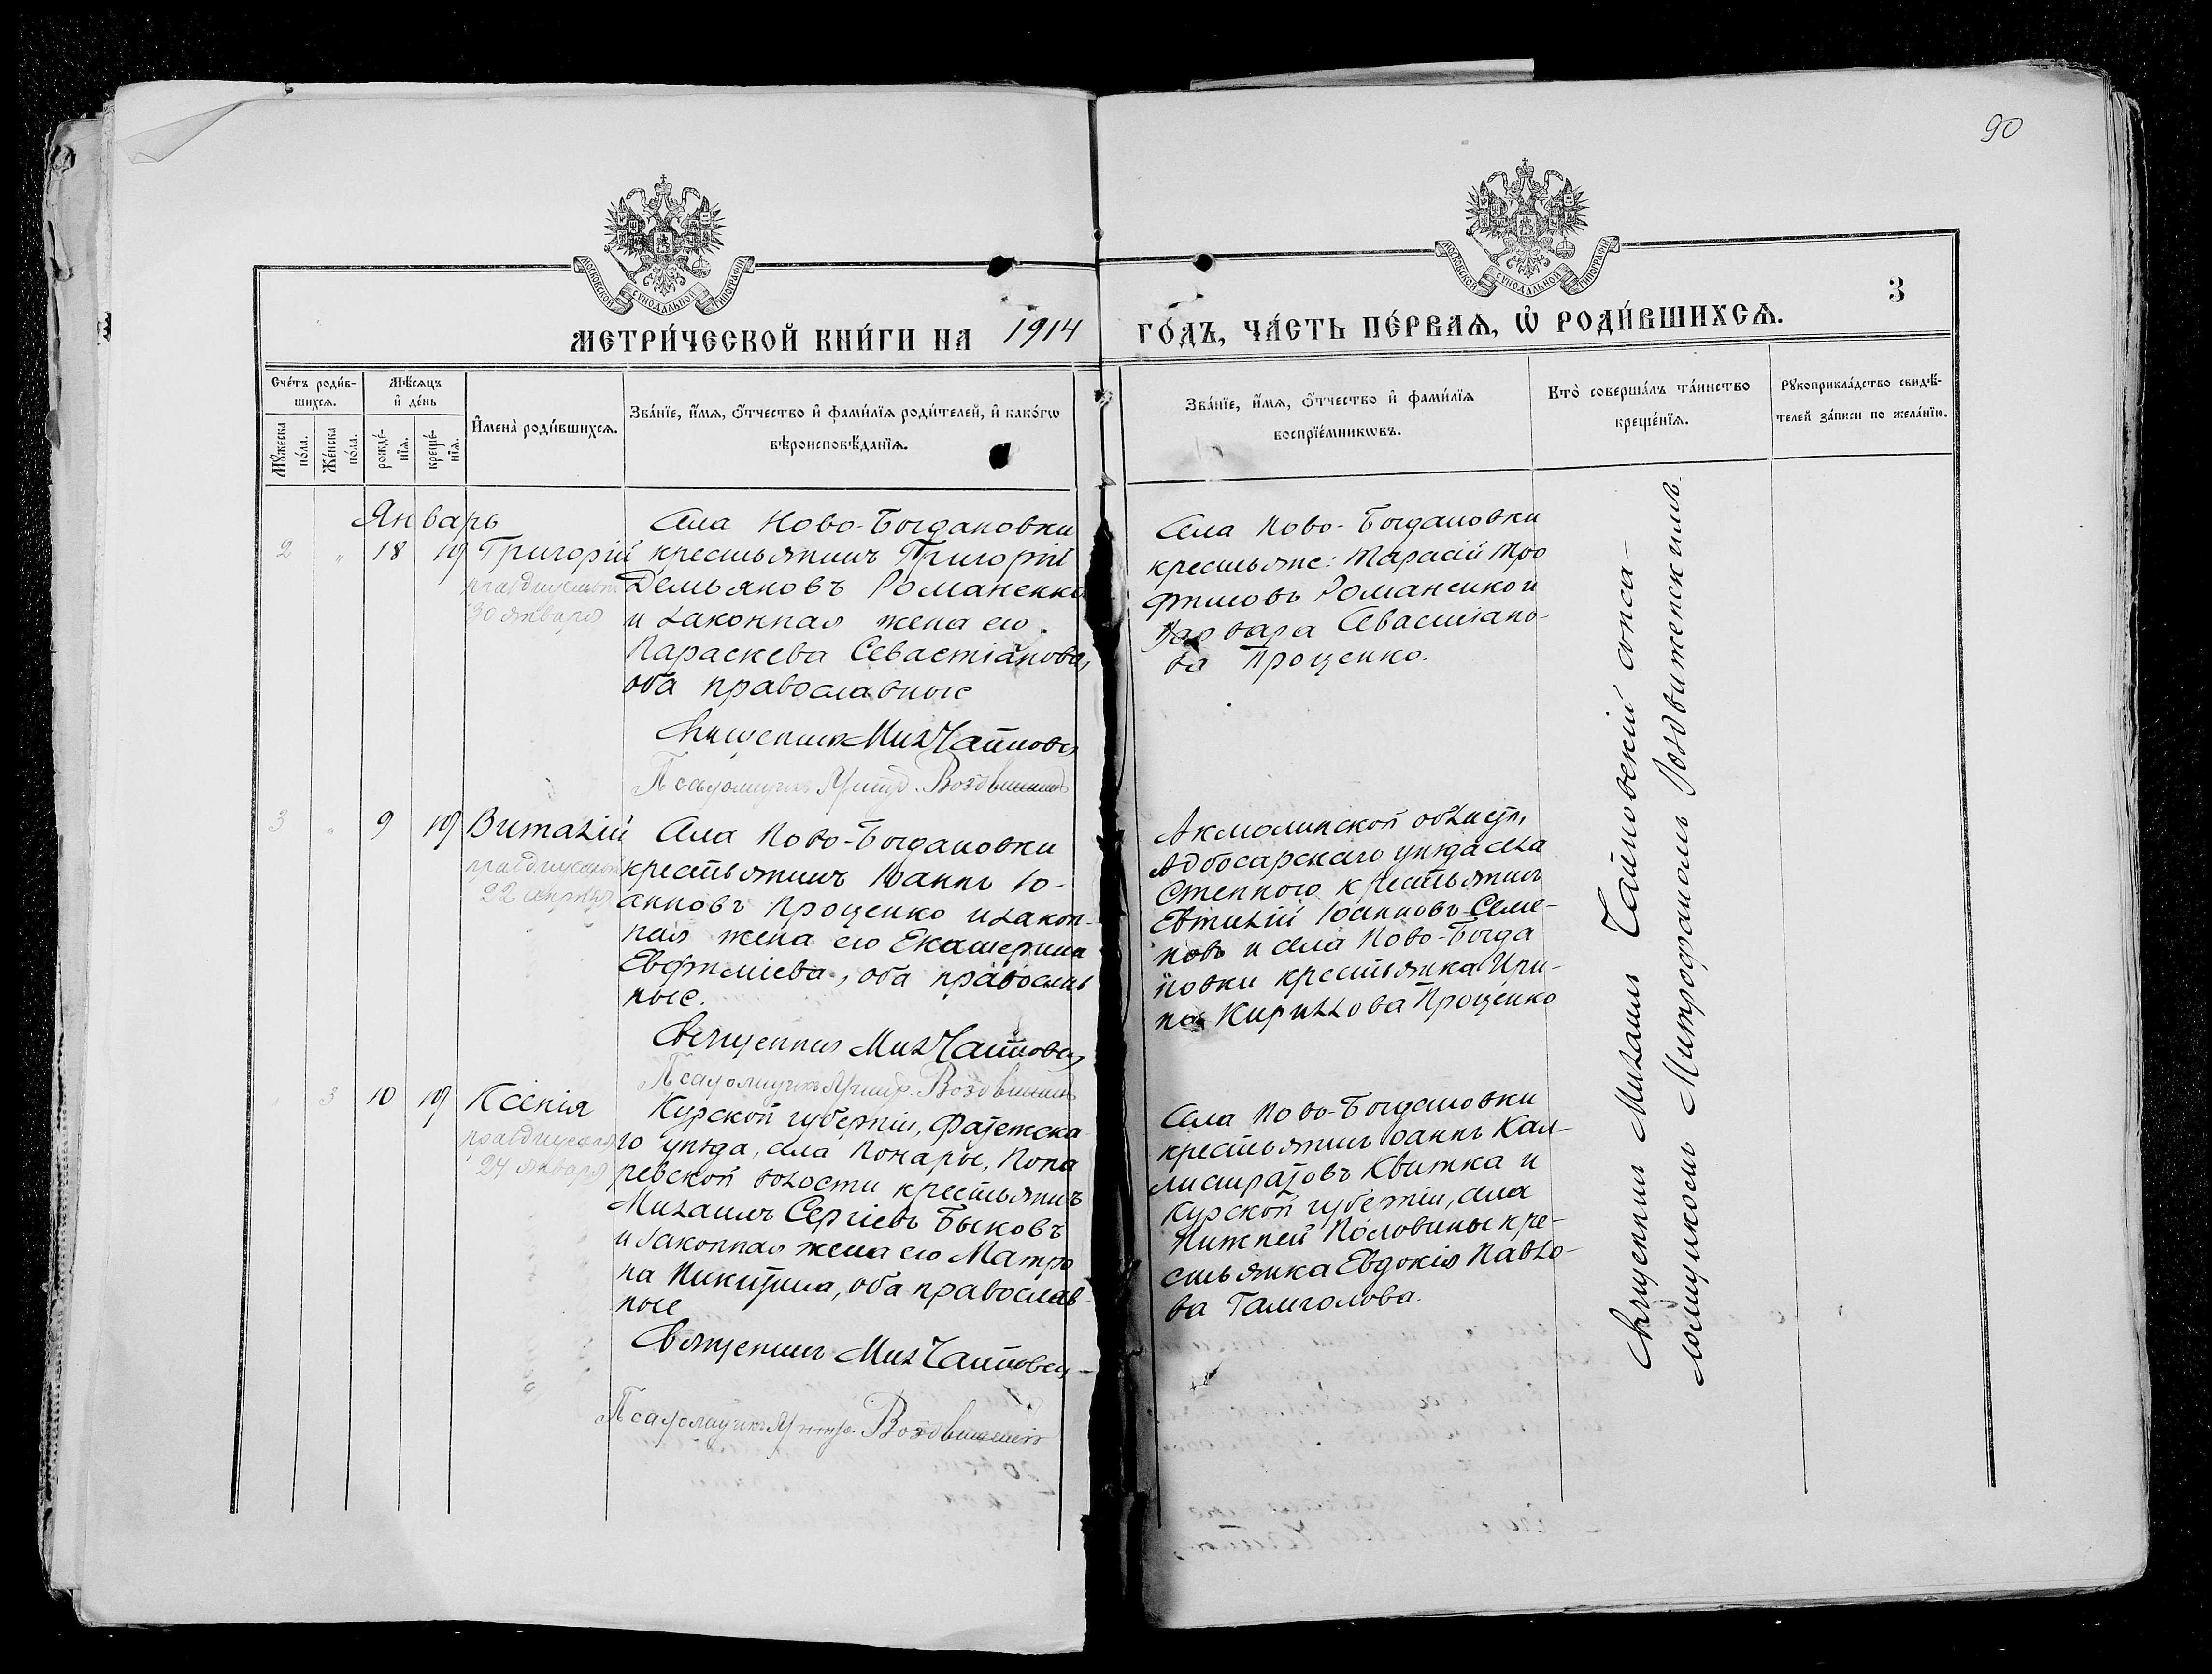 90
МОСКОВСКОЙ СѴНОДАЛЬНОЙ ТИПОГРАФІИ
МОСКОВСКОЙ СѴНОДАЛЬНОЙ ТИПОГРАФІИ
3
МЕТРИ́ЧЕСКОЙ КНИ́ГИ НА 1914 ГО́ДЪ, ЧА́СТЬ ПЕ́РВАѦ, Ѡ҆ РОДИ́ВШИХСѦ.
Сче́тъ роди́в-
шихсѧ.
Мѣ́сѧцъ
и҆ де́нь
Мꙋ́жеска
по́ла.
Же́нска
по́ла.
рожде́-
нїѧ.
креще́-
нїѧ.
И҆мена̀ роди́вшихсѧ.
Зва́нїе, и҆́мѧ, ѻ҆́тчество и҆ фами́лїѧ роди́телей, и҆ како́гѡ
вѣроисповѣ́данїѧ.
Зва́нїе, и҆́мѧ, ѻ҆́тчество и҆ фами́лїѧ
воспрїе́мникѡвъ.
Кто̀ соверша́лъ та́инство
креще́нїѧ.
Рꙋкоприкла́дство свидѣ́-
телей за́писи по жела́нїю.
Январь
2 " 18 19 Григорій
празднуетъ
30 января
Села Ново-Богдановки
крестьянинъ Григорій
Демьяновъ Романенко
и законная жена его
Параскева Севастіанова,
оба православные
Священникъ Мих Чайновск
Псаломщикъ Митр. Воздвиженск
Села Ново-Богдановки
крестьяне: Тарасій Тро
фимовъ Романенко и
Варвара Севастіано-
ва Проценко.
3 " 9 19 Виталій
22 апрѣля
Села Ново-Богдановки
крестьянинъ Іоаннъ Іо-
анновъ Проценко и закон-
ная жена его Екатерина
Евфиміева, оба православ
ные.
Священник Мих Чайновск
Псаломщикъ Митр. Воздвиженск
Акмолинской област,
Адбосарскаго уѣзда села
Степного крестьянинъ
Евтихій Іоанновъ Семе-
новъ и села Ново-Богда
новки крестьянка Ири-
на Кириллова Проценко
3 10 19 Ксенія
24 января
Курской губерніи, Фатежска
го уѣзда, села Понары, Пона
ревской волости крестьянинъ
Михаилъ Сергіевъ Быковъ
и законная жена его Матро
на Никитина, оба православ-
ные
Священникъ Мих Чайновск
Псаломщикъ Митр. Воздвиженск
Села Ново-Богдановки
крестьянинъ Іоаннъ Кал-
листратовъ Квитка и
Курской губерніи, села
Нижней Половины кре-
стьянка Евдокія Павло-
ва Галголова.
Священник Михаил Чайновскій съ пса-
ломщиком Митрофаномъ Воздвиженским.